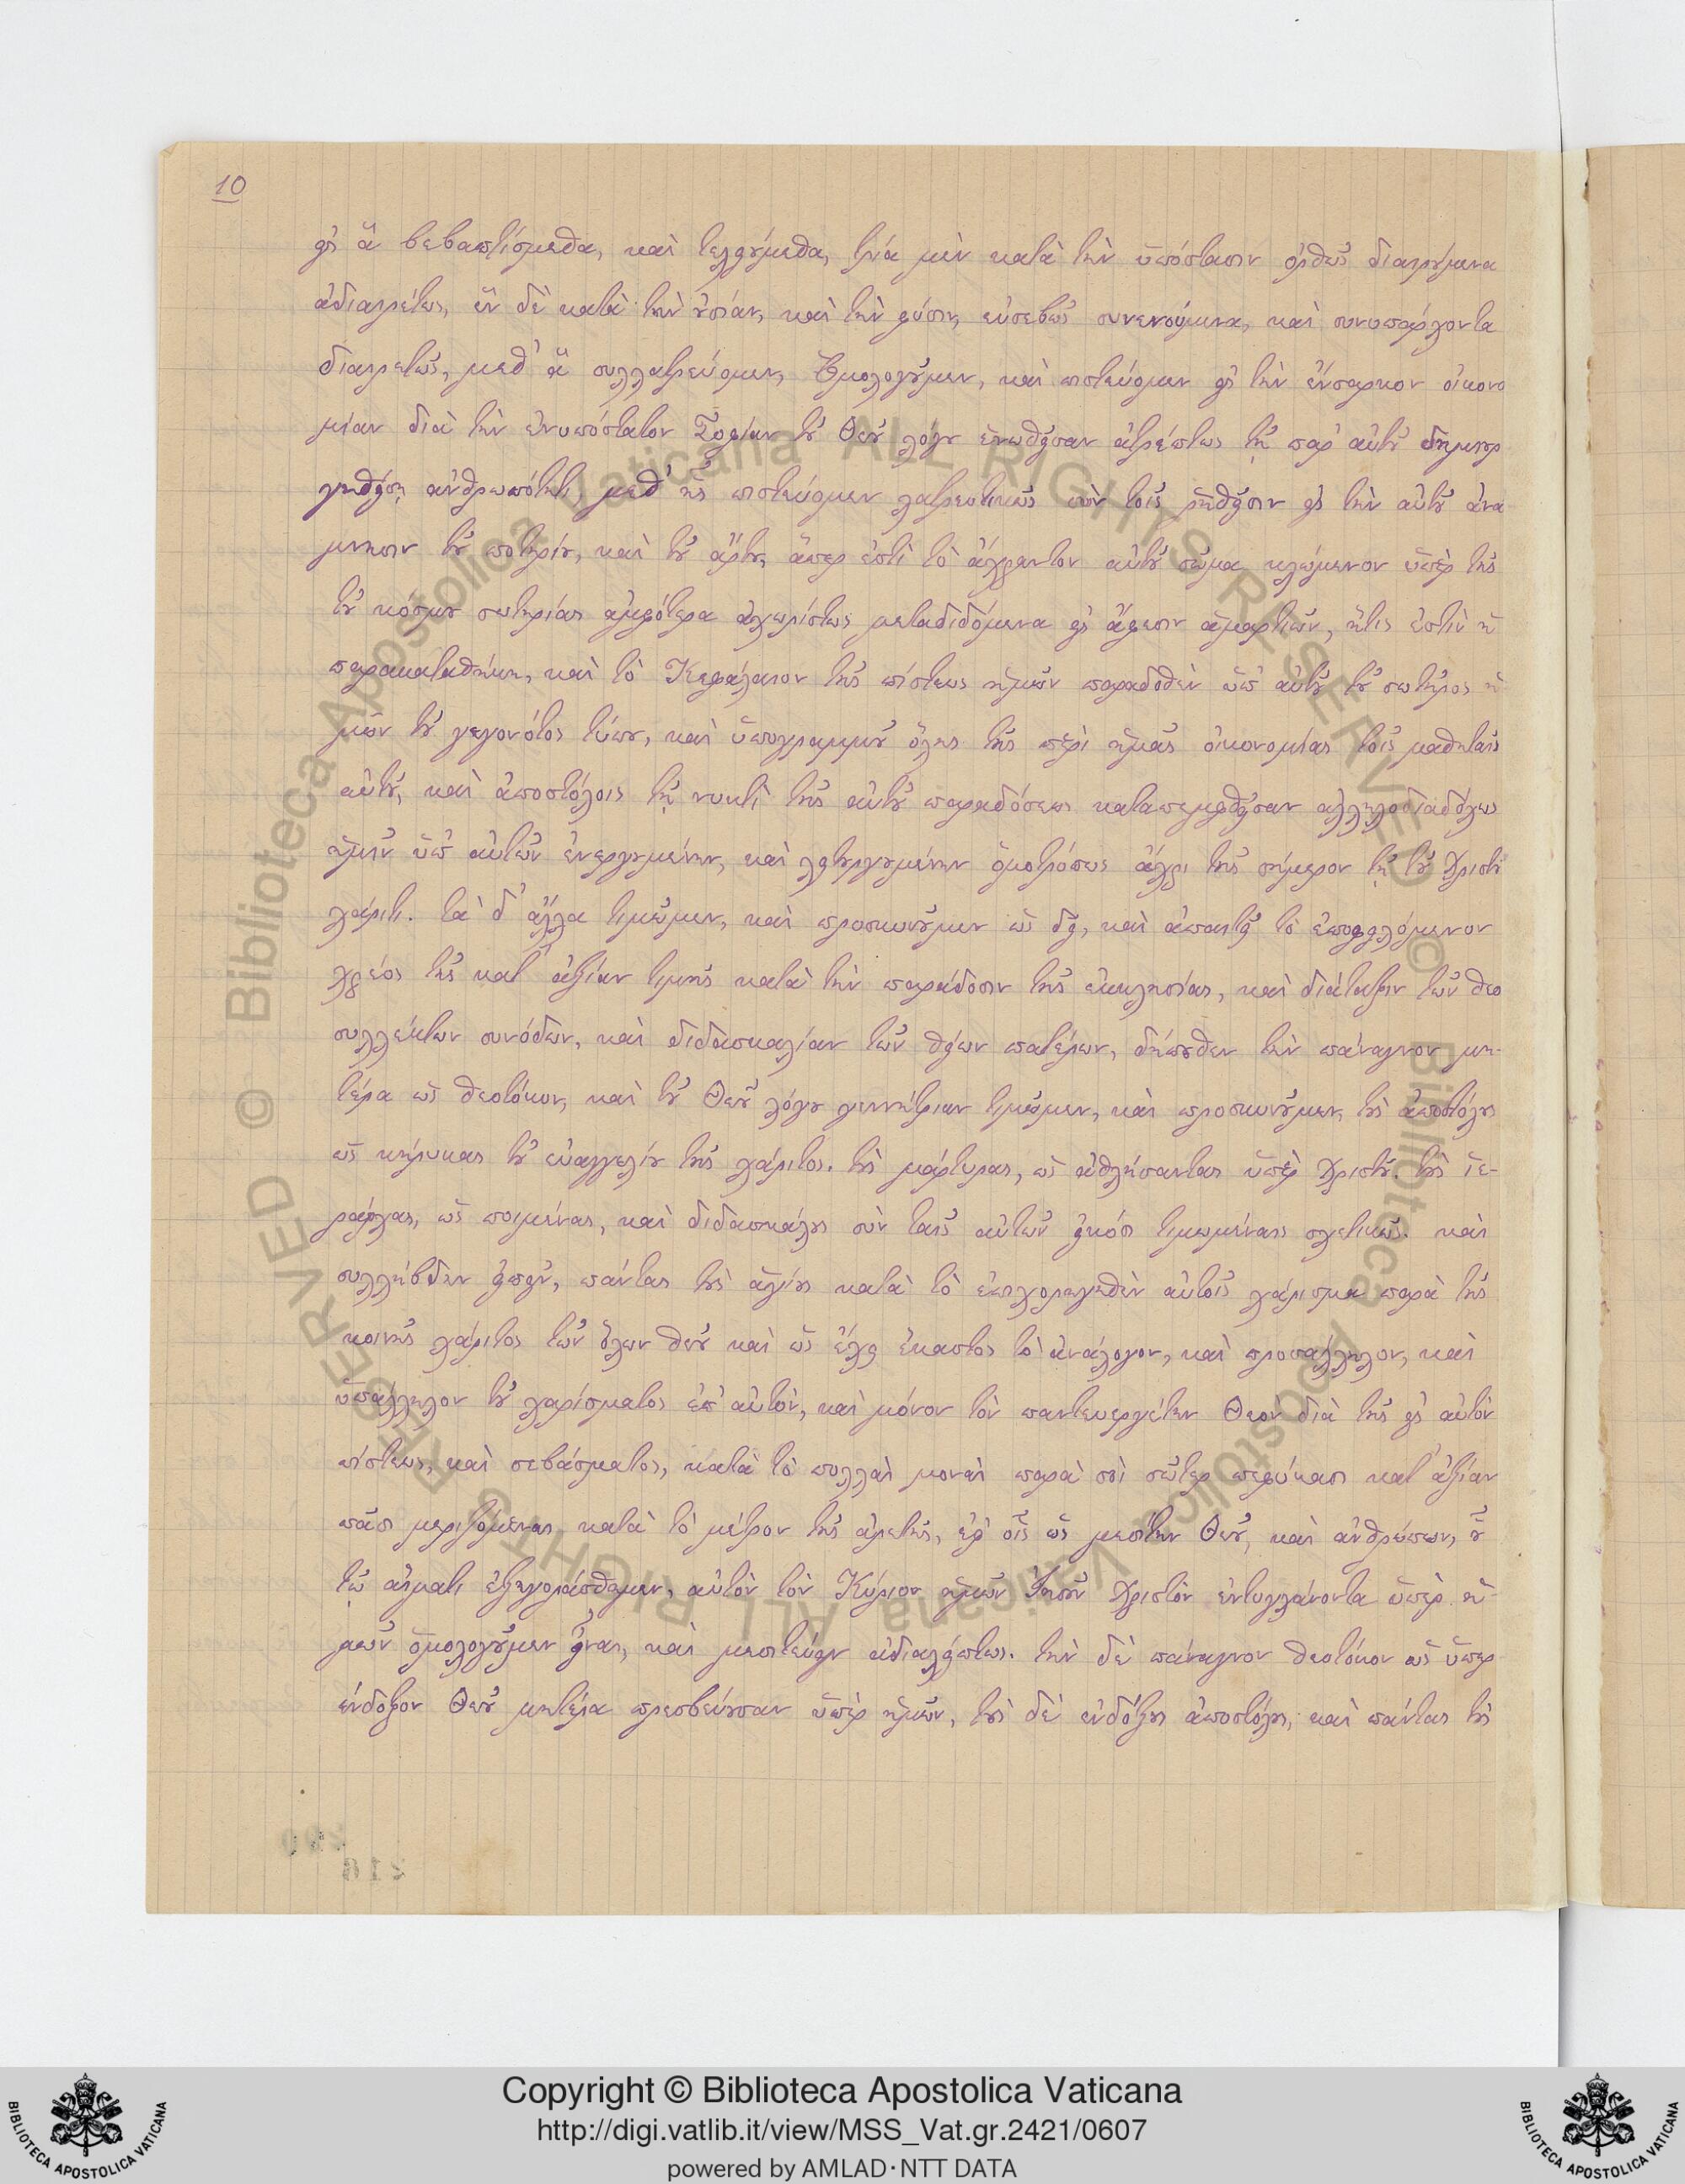 10
εἰς ἃ βεβαπτίσμεθα, καὶ τελούμεθα, τρία μὲν κατὰ τὴν ὑπόστασιν ὀρθῶς διαιρούμενα
ἀδιαιρέτως, ἓν δὲ κατὰ τὴν οὐσίαν, καὶ τὴν φύσιν, εὐσεβῶς συνενούμενα, καὶ συνυπάρχοντα
διαιρετῶς, μεθ' ἃ συλλατρεύομεν, ὁμολογοῦμεν, καὶ πιστεύομεν εἰς τὴν ἔνσαρκον οἰκονο
μίαν διὰ τὴν ἐνυπόστατον Σοφίαν τοῦ Θεοῦ λόγου ἑνωθεῖσαν ἀτρέπτως τῇ παρ' αὐτοῦ δημιουρ
γηθείσῃ ἀνθρωπότητι, μεθ' ἧς πιστεύομεν λατρευτικῶς σὺν τοῖς ῥηθεῖσιν εἰς τὴν αὐτοῦ ἀνά
μνησιν τοῦ ποτηρίου, καὶ τοῦ ἄρτου, ἅπερ ἐστὶ τὸ ἄχραντον αὐτοῦ σῶμα κλώμενον ὑπὲρ τῆς
τοῦ κόσμου σωτηρίας ἀμφότερα ἀχωρίστως μεταδιδόμενα εἰς ἄφεσιν ἁμαρτιῶν, ἥτις ἐστὶν ἡ
παρακαταθήκη, καὶ τὸ Κεφάλαιον τῆς πίστεως ἡμῶν παραδοθὲν ὑπ' αὐτοῦ τοῦ σωτῆρος ἡ
μῶν τοῦ γεγονότος τύπου, καὶ ὑπογραμμοῦ ὅλης τῆς περὶ ἡμᾶς οἰκονομίας τοῖς μαθηταῖς
αὐτοῦ, καὶ ἀποστόλοις τῇ νυκτὶ τῆς αὐτοῦ παραδόσεως καταπεμφθεῖσαν ἀλληλοδιαδόχως
ἡμῖν ὑπ' αὐτῶν ἐνεργουμένην, καὶ λειτουργουμένην ὁμοτρόπως ἄχρι τῆς σήμερον τῇ τοῦ Χριστοῦ
χάριτι. τὰ δ' ἄλλα τιμῶμεν, καὶ προσκυνοῦμεν ὡς δεῖ, καὶ ἀπαιτεῖ τὸ ἐποφειλόμενον
χρέος τῆς κατ' ἀξίαν τιμῆς κατὰ τὴν παράδοσιν τῆς ἐκκλησίας, καὶ διάταξιν τῶν θεο
συλλέκτων συνόδων, καὶ διδασκαλίαν τῶν θείων πατέρων, δήπουθεν τὴν πάναγνον μη-
τέρα ὡς θεοτόκον, καὶ τοῦ Θεοῦ λόγου γεννήτριαν τιμῶμεν, καὶ προσκυνοῦμεν, τοὺς ἀποστόλους
ὡς κήρυκας τοῦ εὐαγγελίου τῆς χάριτος. τοὺς μάρτυρας, ὡς ἀθλήσαντας ὑπὲρ Χριστοῦ. τοὺς ἱε-
ράρχας, ὡς ποιμένας, καὶ διδασκάλους σὺν ταῖς αὐτῶν εἰκόσι τιμωμέναις σχετικῶς. καὶ
συλλήβδην εἰπεῖν, πάντας τοὺς ἁγίους κατὰ τὸ ἐπιχορηγηθὲν αὐτοῖς χάρισμα παρὰ τῆς
κοινῆς χάριτος τῶν ὅλων θεοῦ καὶ ὡς ἔχει ἕκαστος τὸ ἀνάλογον, καὶ προσάλληλον, καὶ
ὑπάλληλον τοῦ χαρίσματος ἐπ' αὐτὸν, καὶ μόνον τὸν παντευεργέτην Θεὸν διὰ τῆς εἰς αὐτὸν
πίστεως, καὶ σεβάσματος, κατὰ τὸ πολλαὶ μοναὶ παρὰ σοὶ σῶτερ πεφύκασι κατ' ἀξίαν
πᾶσι μεριζόμεναι κατὰ τὸ μέτρον τῆς ἀρετῆς, ἐφ' οἷς ὡς μεσίτην Θεοῦ, καὶ ἀνθρώπων, οὗ
τῷ αἵματι ἐξηγοράσθημεν, αὐτὸν τὸν Κύριον ἡμῶν Ἰησοῦν Χριστὸν ἐντυγχάνοντα ὑπὲρ ἡ-
μῶν ὁμολογοῦμεν εἶναι, καὶ μεσιτεύειν ἀδιαλείπτως. τὴν δὲ πάναγνον θεοτόκον ὡς ὑπερ
ένδοξον Θεοῦ μητέρα πρεσβεύουσαν ὑπὲρ ἡμῶν, τοὺς δὲ ἐνδόξους ἀποστόλους, καὶ πάντας τοὺς
© Biblioteca Apostolica Vaticana ALL RIGHTS RESERVED © Biblioteca Apostolica Vaticana ALL RIGHTS RESERVED
BIBLIOTECA APOSTOLICA VATICANA
Copyright © Biblioteca Apostolica Vaticana
http://digi.vatlib.it/view/MSS_Vat.gr.2421/0607
powered by AMLAD·NTT DATA
BIBLIOTECA APOSTOLICA VATICANA